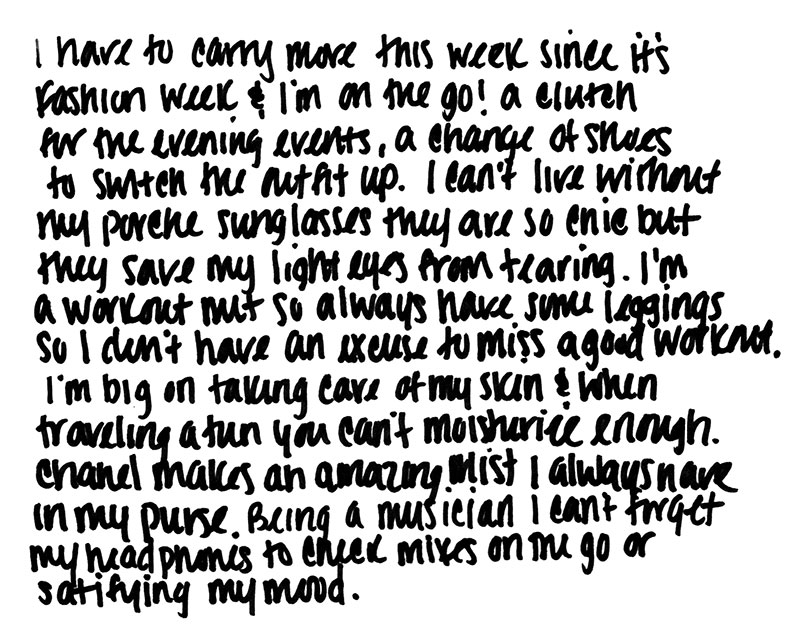 I have to carry more this week since it's
Fashion week & I'm on the go! a clutch
for the evening events, a change of shoes
to switch the outfit up. I can't live without
my porche sunglasses they are so chic but
they save my light eyes from tearing. I'm
a workout nut so always have some leggings
so I don't have an excuse to miss a good workout.
I'm big on taking care of my skin & when
traveling a tun you can't moisturize enough.
Chanel makes an amazing Mist I always have
in my purse. Being a musician I can't forget
my headphones to check mixes on the go or
satifying my mood.